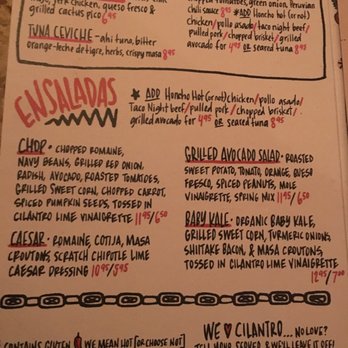 jerk chicken, queso fresco &
grilled cactus pico 6.95
TUNA CEVICHE - ahi tuna, bitter
orange-leche de tigre, herbs, crispy masa 8.95
tomatoes, green onion, Peruvian
chili sauce 8.95 *ADD Honcho hot (or not)
chicken/pollo asado/taco night beef/
pulled pork/chopped brisket/grilled
avocado for 4.95 OR seared tuna 8.95
ENSALADAS
* ADD Honcho Hot (or not) chicken/pollo asado/
Taco Night beef/pulled pork/chopped brisket/
grilled avocado for 4.95 OR seared tuna 8.95
CHOP • CHOPPED ROMAINE,
NAVY BEANS, GRILLED RED ONION,
RADISH, AVOCADO, ROASTED TOMATOES,
GRILLED SWEET CORN, CHOPPED CARROT,
SPICED PUMPKIN SEEDS, TOSSED IN
CILANTRO LIME VINAIGRETTE 11.95/6.50
CAESAR • ROMAINE, COTIJA, MASA
CROUTONS, SCRATCH CHIPOTLE LIME
CAESAR DRESSING 10.95/5.95
GRILLED AVOCADO SALAD • ROASTED
SWEET POTATO, TOMATO, ORANGE, QUESO
FRESCO, SPICED PEANUTS, MOLE
VINAIGRETTE, SPRING MIX 11.95/6.50
BABY KALE • ORGANIC BABY KALE,
GRILLED SWEET CORN, TURMERIC ONIONS,
SHIITAKE BACON, & MASA CROUTONS,
TOSSED IN CILANTRO LIME VINAIGRETTE
12.95/7.00
CONTAINS GLUTEN WE MEAN HOT [OR CHOOSE NOT]
WE CILANTRO... NO LOVE?
TELL YOUR SERVER & WE'LL LEAVE IT OFF!